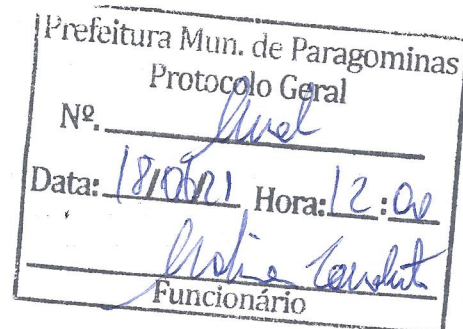 Prefeitura Mun. de Paragominas
Protocolo Geral
Nº.
Data: 18/0 /21 Hora: 12:00
Funcionário